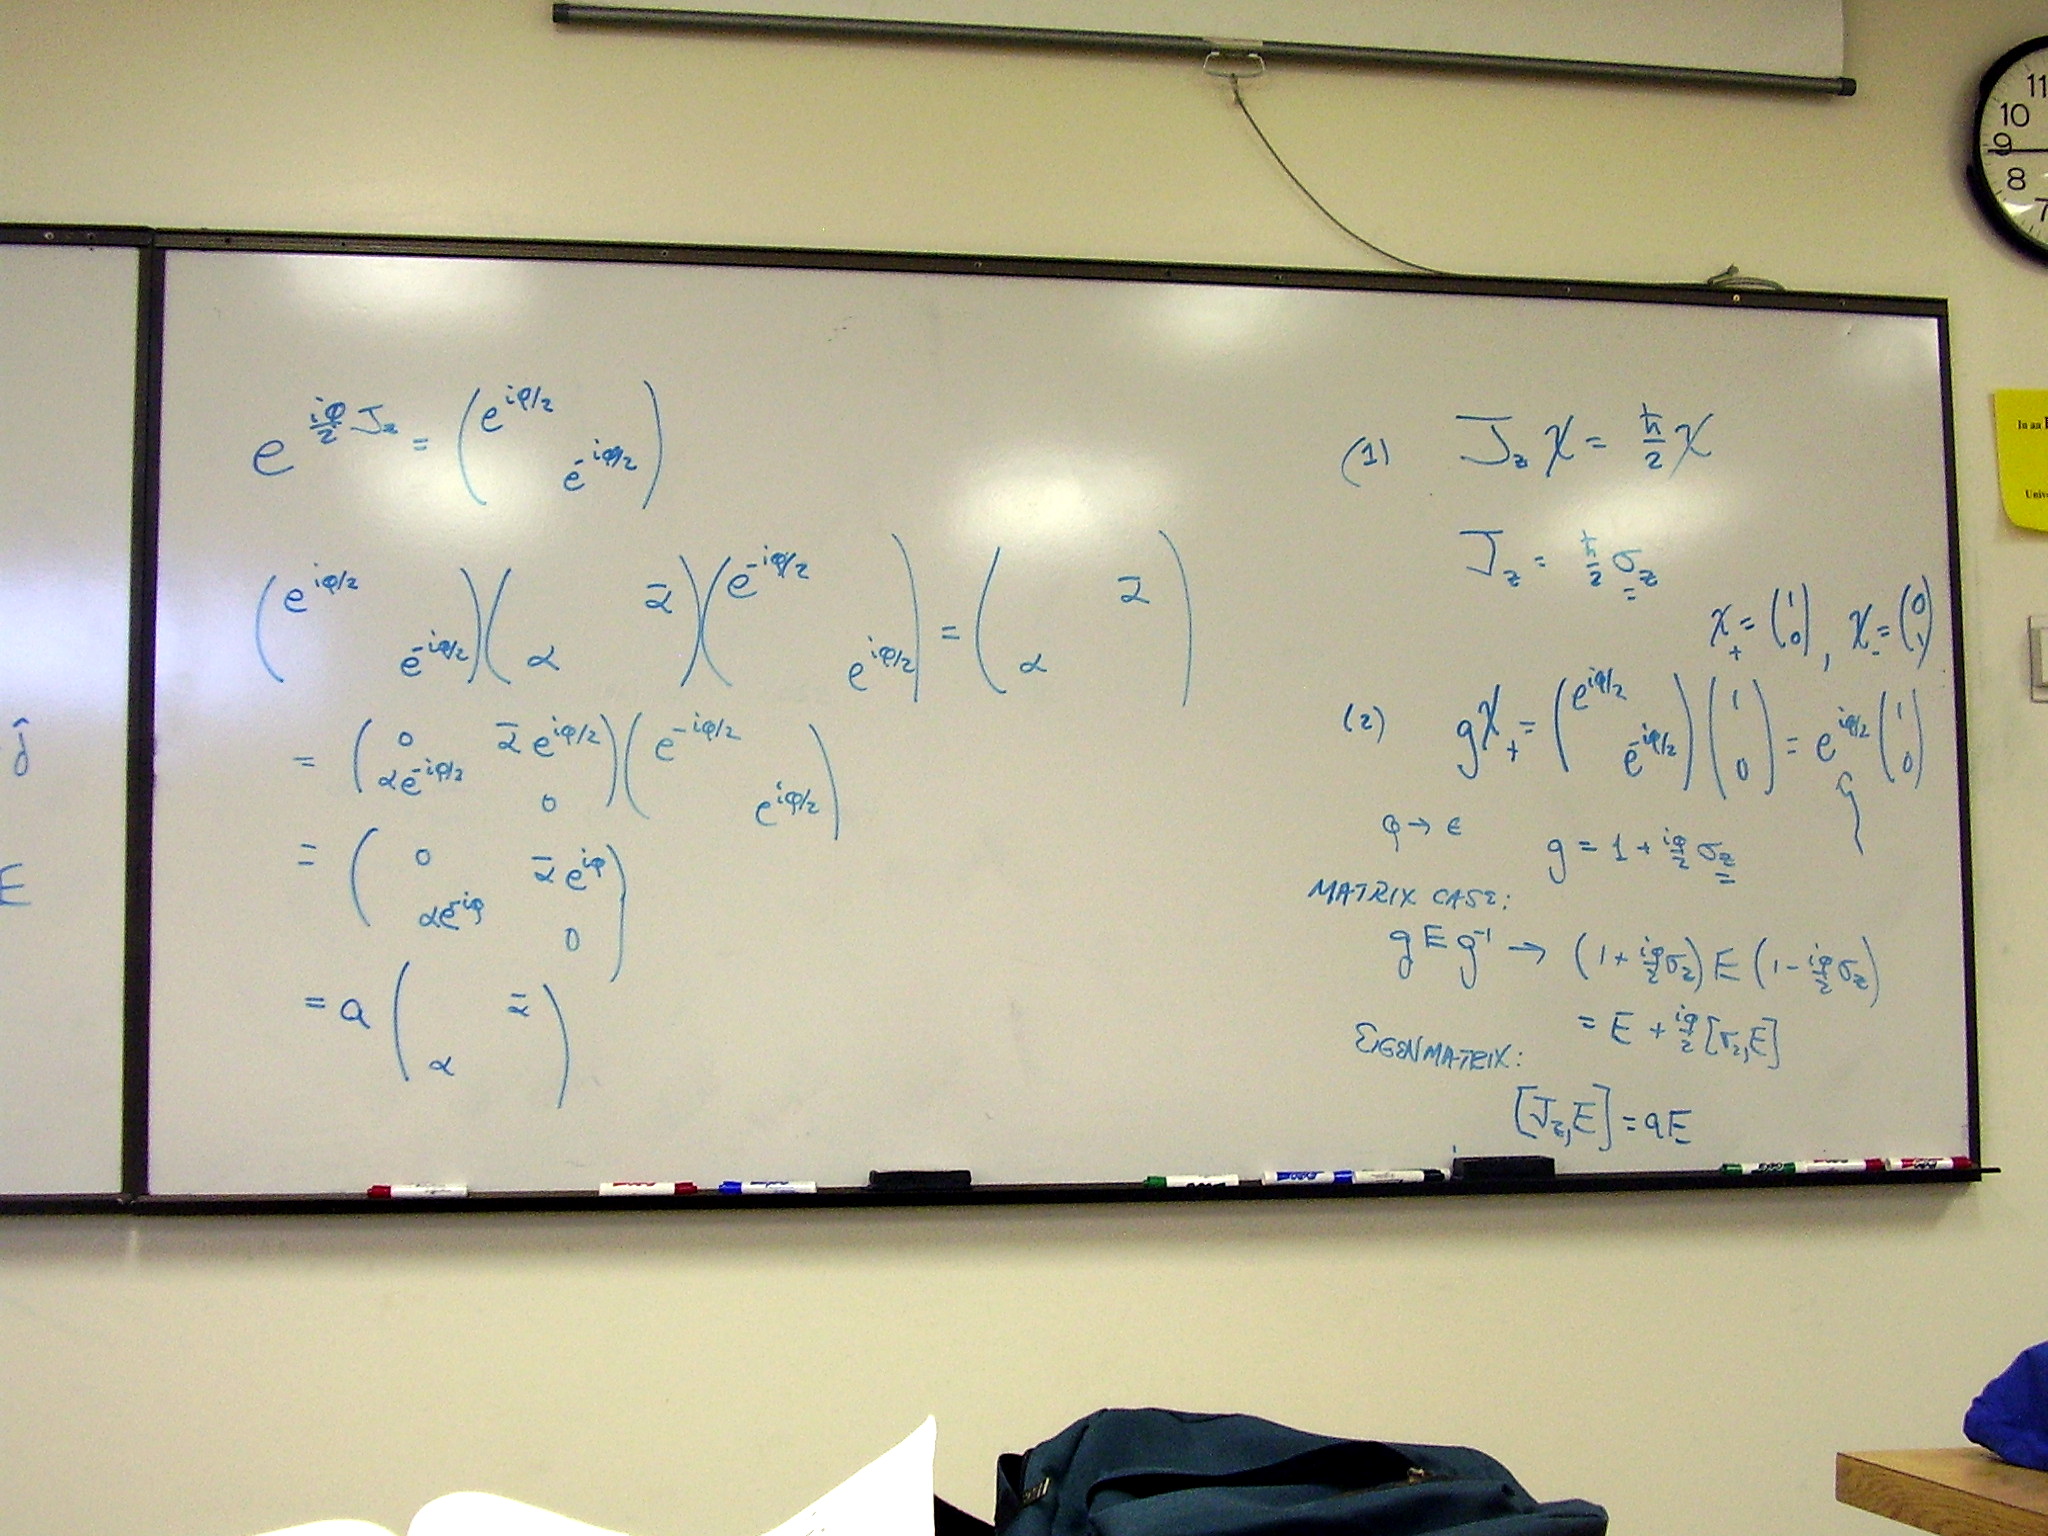 e^{iφ/2 J_z} = (e^{iφ/2} e^{-iφ/2})
(e^{iφ/2} e^{-iφ/2}) (ᾱ α) (e^{-iφ/2} e^{iφ/2}) = (ᾱ α)
= (0 ᾱe^{iφ/2} αe^{-iφ/2} 0) (e^{-iφ/2} e^{iφ/2})
= (0 ᾱe^{iφ} αe^{-iφ} 0)
= a (ᾱ α)
(1) J_z χ = ħ/2 χ
J_z = ħ/2 σ_z
χ_+ = (1 0), χ_- = (0 1)
(2) gχ_+ = (e^{iφ/2} e^{-iφ/2}) (1 0) = e^{iφ/2} (1 0)
φ → ε g = 1 + iφ/2 σ_z
MATRIX CASE:
g E g^{-1} → (1 + iφ/2 σ_z) E (1 - iφ/2 σ_z)
= E + iφ/2 [σ_z, E]
EIGENMATRIX:
[J_z, E] = aE
ĵ
E
11
10
9
8
7
In an
Unive